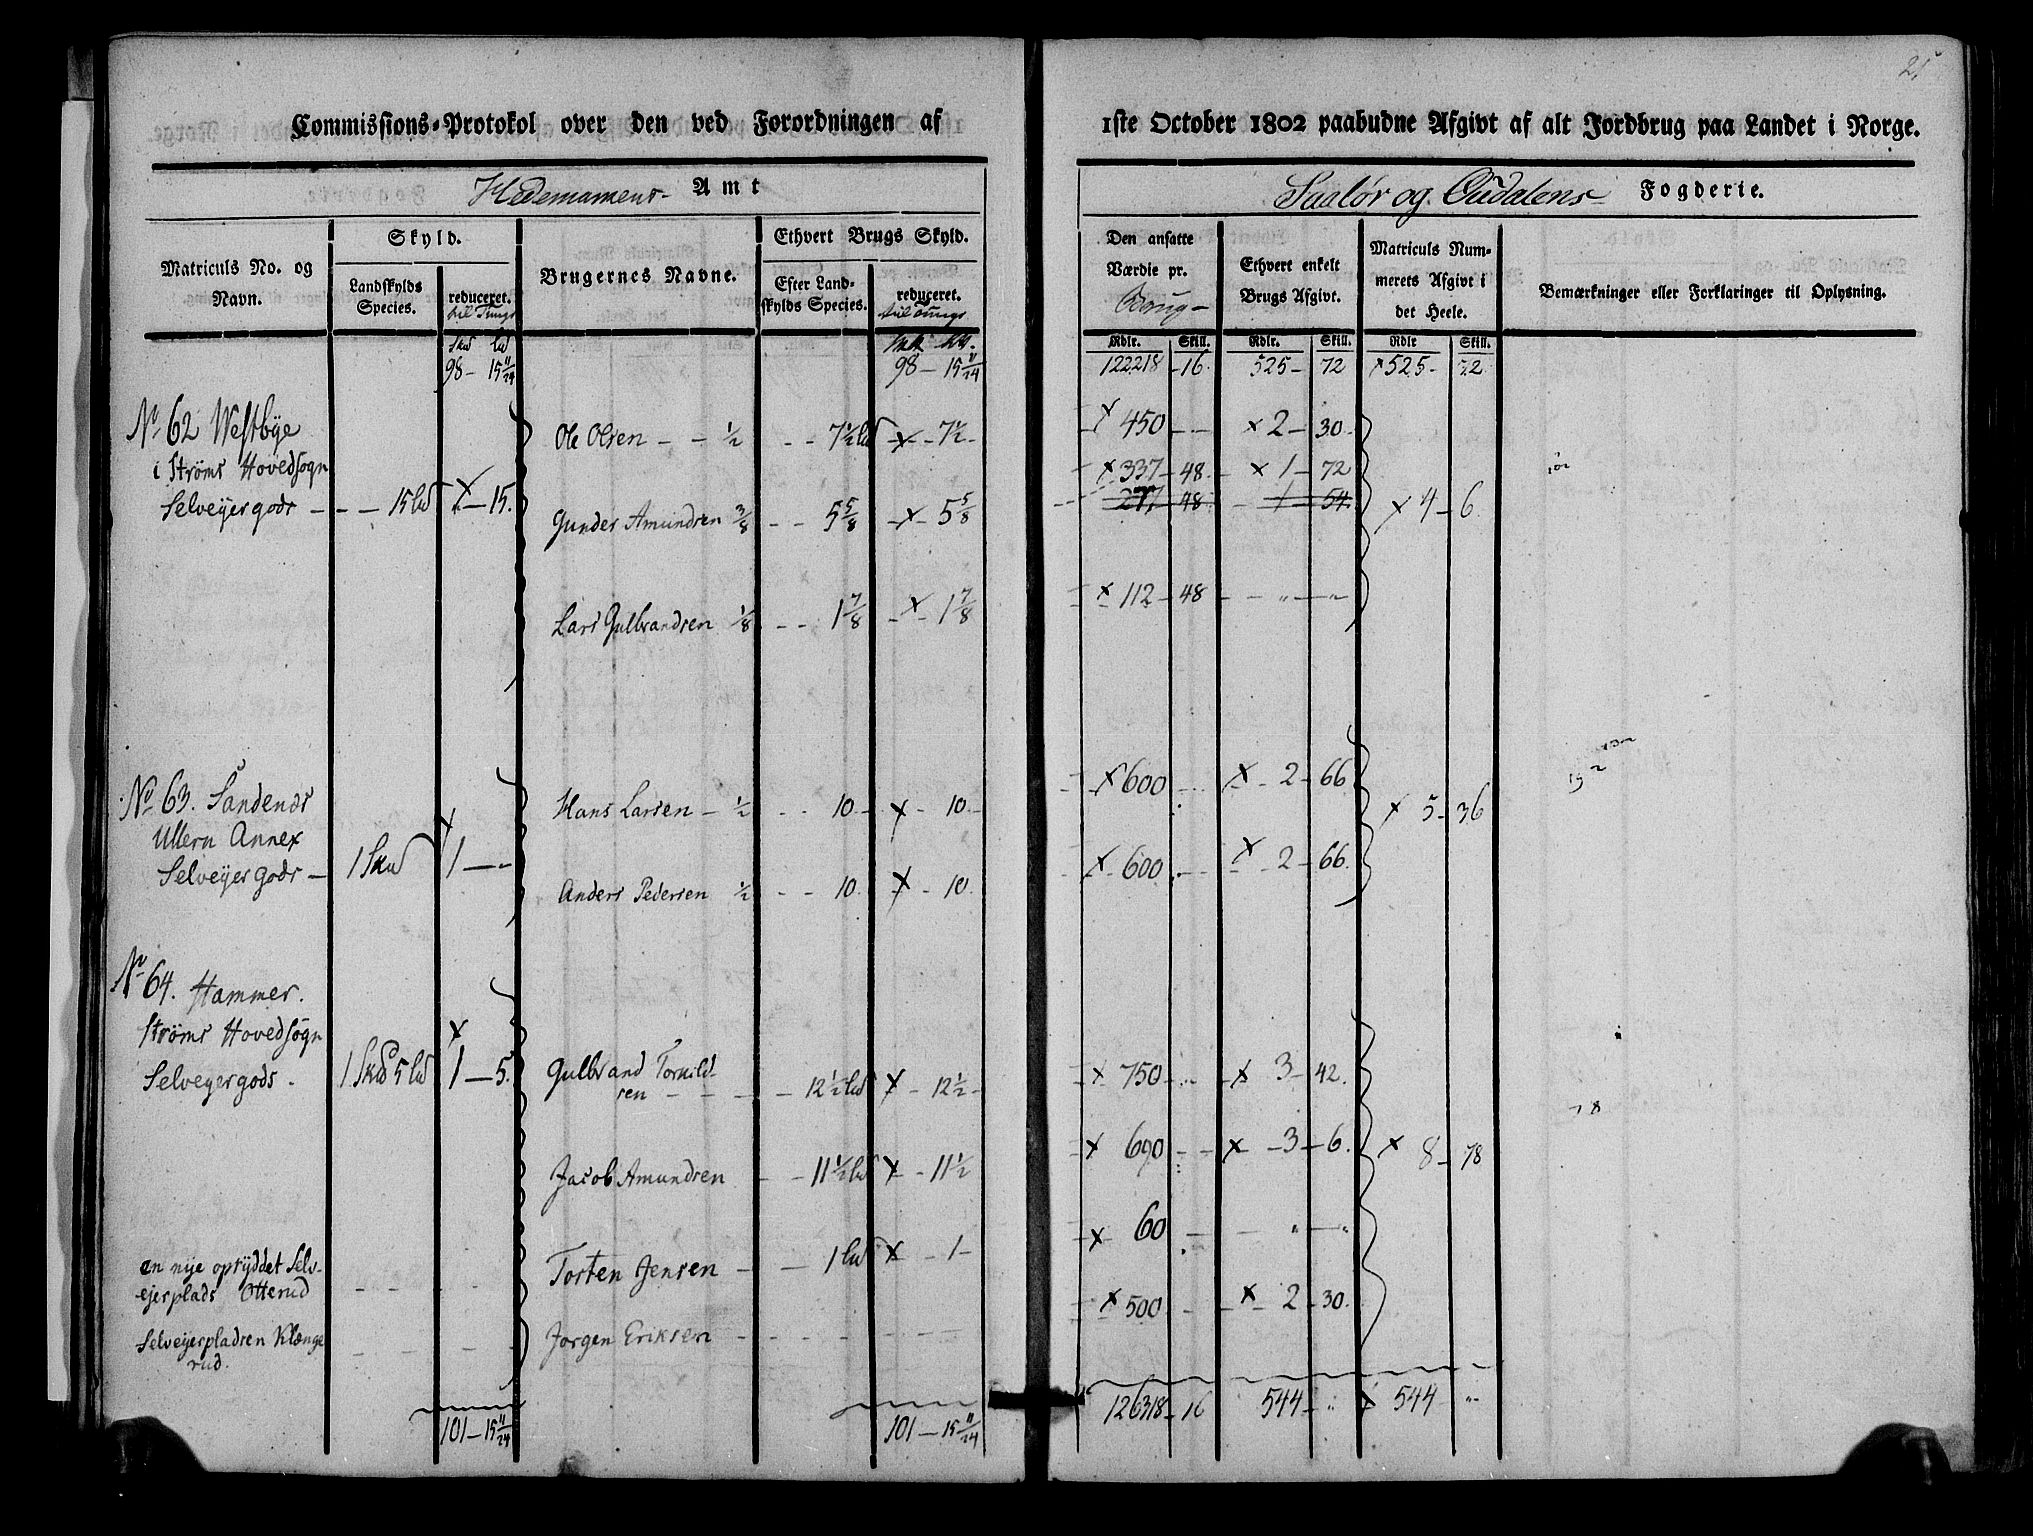 25
Commissions-Protokol over den ved Forordningen af 1ste October 1802 paabudne Afgivt af alt Jordbrug paa Landet i Norge.
Hedemarkens Amt
Saalør og Oudalens Fogderie.
Matriculs No. og Navn.
Skyld.
Landskylds Species.
reduceret. til Tunge
Brugernes Navne.
Ethvert Brugs Skyld.
Efter Landskylds Species.
reduceret. til Tunge
Den ansatte Værdie pr. Brug
Ethvert enkelt Brugs Afgivt.
Matriculs Nummerets Afgivt i det Heele.
Bemærkninger eller Forklaringer til Oplysning.
Rdlr. Skill. Rdlr. Skill. Rdlr Skill.
98 - 15 11/24 98 - 15 11/24 122218 - 16. 525 - 72 × 525 - 72
No 62 Westbye
i Strøms Hovedsogn
Selveyergods - - - 15 lod × - 15.
Ole Olsen - - 1/2 - - 7 1/2 lod × - 7 1/2 - × 450 - - × 2 - 30.
× 337 - 48 - × 1 - 72
277 - 48 - 1 - 54
Gunder Amundsen 3/8 - - 5 5/8 - × - 5 5/8 × 4 - 6
Lars Gulbrandsen 1/8 - - 1 7/8 - × - 1 7/8 × 112 - 48 - - " - "
No 63. Sandenær
Ullern Annex
Selveyergods - 1 Skd × 1 - -
Hans Larsen - 1/2 - - 10 - × - 10 - × 600 - - × - 2 - 66 × 5 - 36
Anders Pedersen 1/2 - - 10. × - 10. × - 600 - - × - 2 - 66.
No 64. Hammer.
Strøms Hovedsogn
Selveyergods - 1 Skd 5 lod × 1 - 5.
Gulbrand Torkildsen - - - - 12 1/2 lod × - 12 1/2 - × 750 - - × 3 - 42.
Jacob Amundsen - - 11 1/2 lod × - 11 1/2 × 690 - - × - 3 - 6. × 8 - 78
en nye opryddet Selvejerplads Otterud - - - -
Torsten Jensen - - 1 lod × - 1 - × 60 - - " - "
Selveyerpladsen Klængerud. - - - -
Jørgen Eriksen - - - - - - - × 500 - - × - 2 - 30.
101 - 15 11/24 101 - 15 11/24 126318 - 16 544 - " × 544 - "